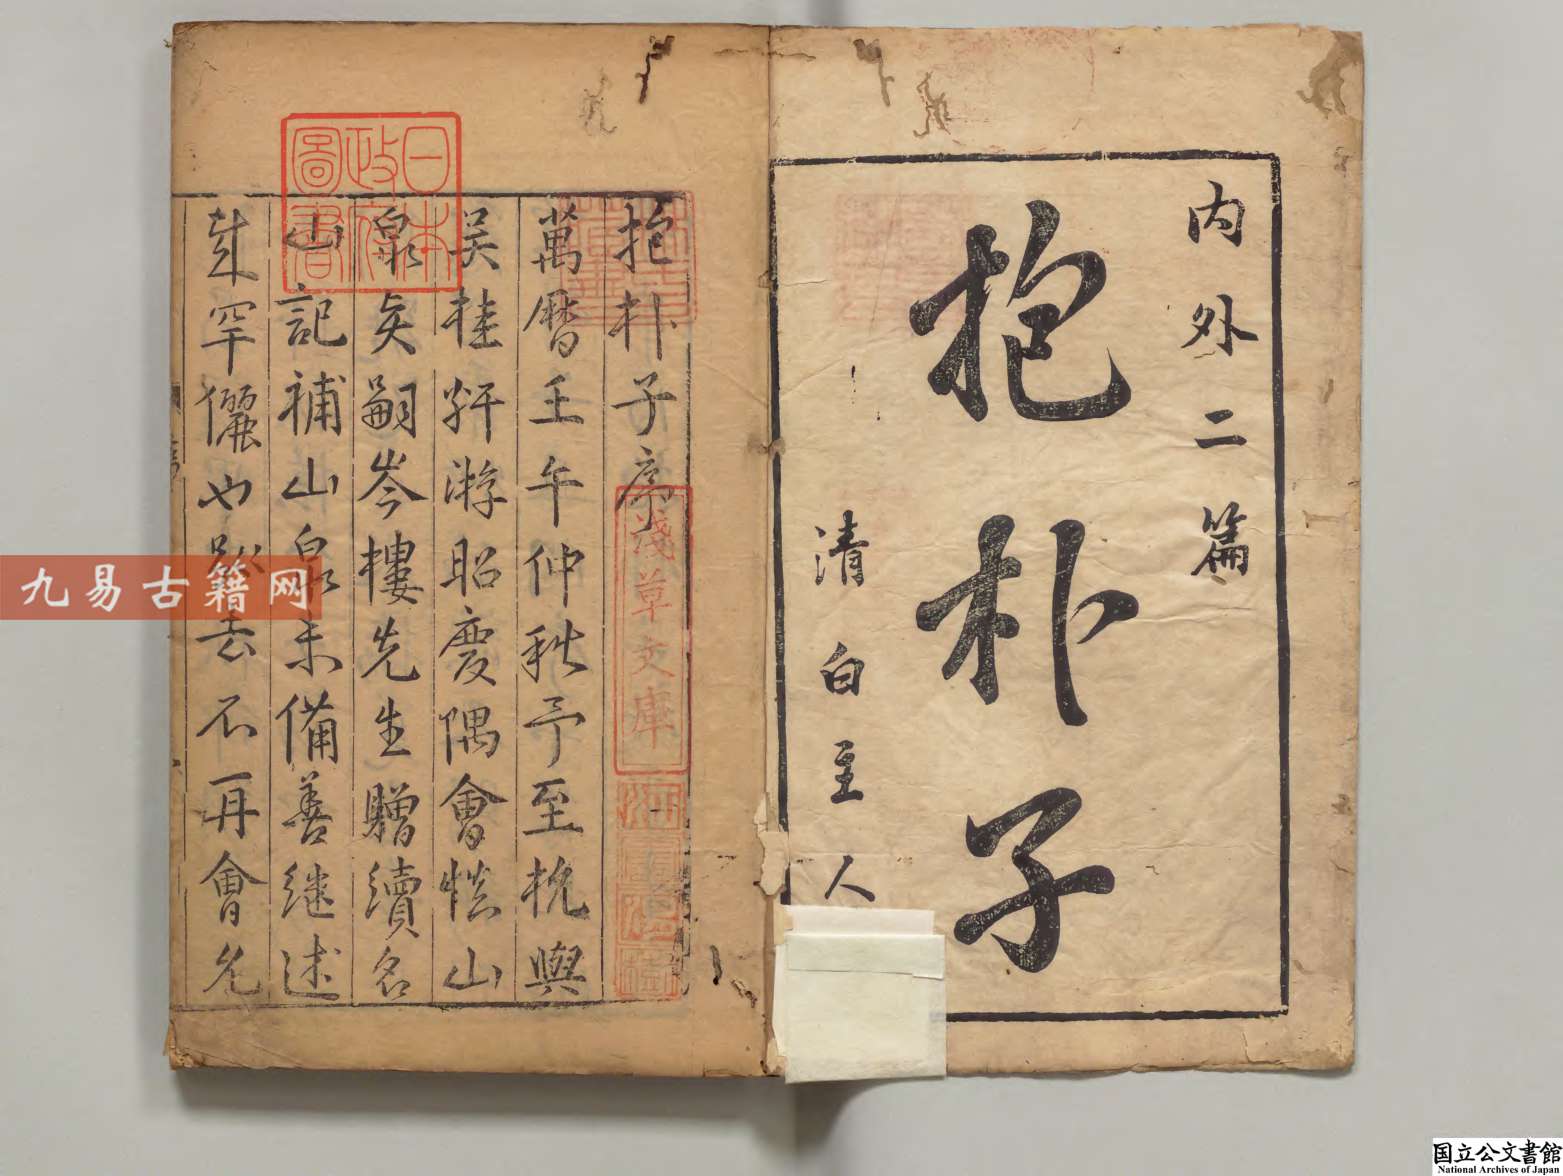 内外二篇
抱朴子
清白主人
抱朴子序
萬曆壬午仲秋予至杭與
吳桂軒游昭慶隅會慎山
泉矣嗣岑樓先生贈續名
山記補山泉未備善継述
哉罕儷也別去不再會允
日本政府圖書
淺草文庫
九易古籍网
国立公文書館
National Archives of Japan